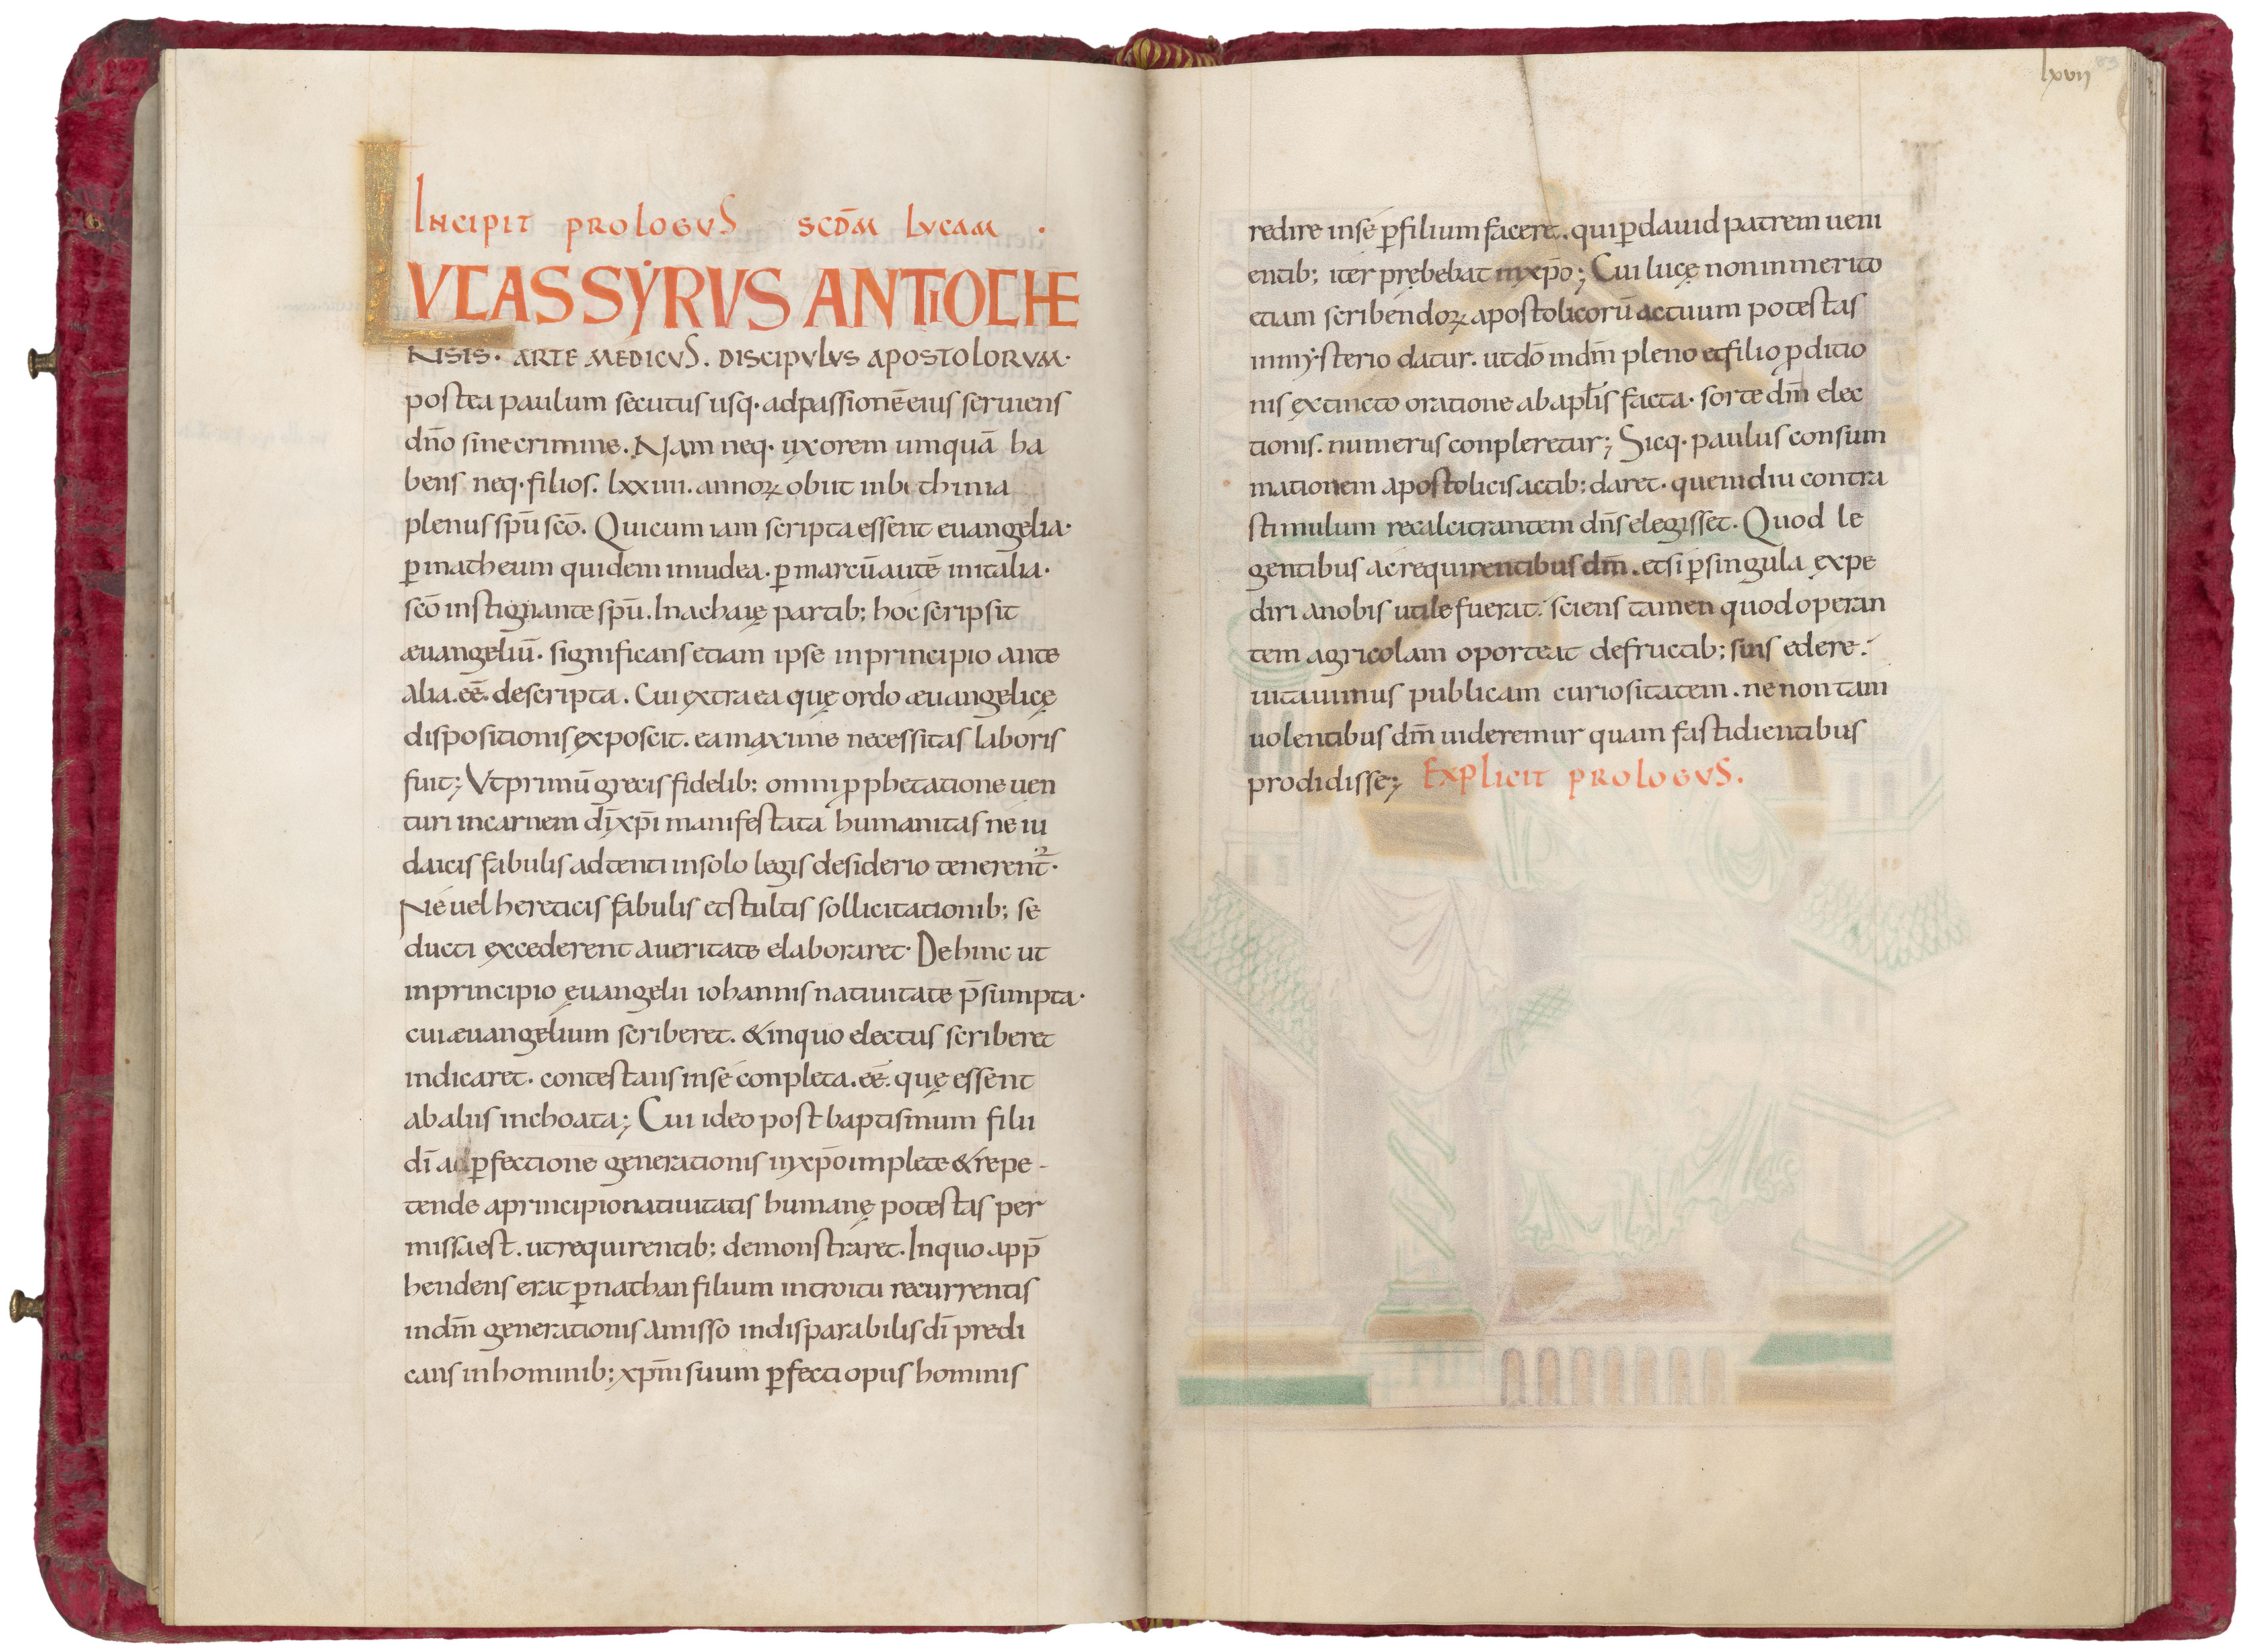 INCIPIT PROLOGUS SCDM LUCAM .
LUCAS SYRUS ANTIOCHE
NSIS · ARTE MEDICUS . DISCIPULUS APOSTOLORUM ·
postea paulum secutus usq· ad passionē eius seruiens
dn̄o sine crimine . Nam neq· uxorem umquā ha
bens neq· filios . lxxiiii . annoꝝ obiit in bithinia
plenus sp̄u sc̄o . Qui cum iam scripta essent euangelia ·
ꝑ matheum quidem in iudea · ꝑ marcū autē in italia ·
sc̄o instignante sp̄u . In achaię partib; hoc scripsit
æuangeliū · significans etiam ipse in principio ante
alia . eē . descripta . Cui extra ea quę ordo æuangelicę
dispositionis exposcit . ea maxime necessitas laboris
fuit ; Ut primū grecis fidelib; omni ꝓphetatione uen
turi in carnem dī xp̄i manifestata humanitas ne iu
daicis fabulis adtenti in solo legis desiderio tenerent̄ ·
Ne uel hereticis fabulis et stultis sollicitationib; se
ducti excederent a ueritate elaboraret · Dehinc ut
in principio ęuangelii iohannis natiuitate p̄sumpta ·
cui æuangelium scriberet . & in quo electus scriberet
indicaret . contestans in se conpleta . eē . quę essent
ab aliis inchoata ; Cui ideo post baptismum filii
dī a ꝑfectione generationis in xp̄o implete & repe-
tende a principio natiuitatis humanę potestas per
missa est . ut requirentib; demonstraret . In quo app̄
hendens erat ꝑ nathan filium introitu recurrentis
in dm̄ generationis amisso indisparabilis dī predi
cans in hominib; xp̄m suum ꝑfecti opus hominis
lxvii
redire in se ꝑ filium facere . qui ꝑ dauid patrem ueni
entib; iter prębebat in xp̄o ; Cui lucę non inmerito
etiam scribendoꝝ apostolicorū actuum potestas
in mysterio datur . ut dō in dm̄ pleno et filio ꝑditio
nis extincto oratione ab apl̄is facta · sorte dm̄ elec
tionis . numerus conpleretur ; Sicq· paulus consum
mationem apostolicis actib; daret . quem diu contra
stimulum recalcitrantem dn̄s elegisset . Quod le
gentibus ac requirentibus dm̄ . etsi ꝑ singula expe
diri a nobis utile fuerat . sciens tamen quod operan
tem agricolam oporteat de fructib; suis edere .
uitauimus publicam curiositatem . ne non tam
uolentibus dm̄ uideremur quam fastidientibus
prodidisse ; EXPLICIT PROLOGUS .